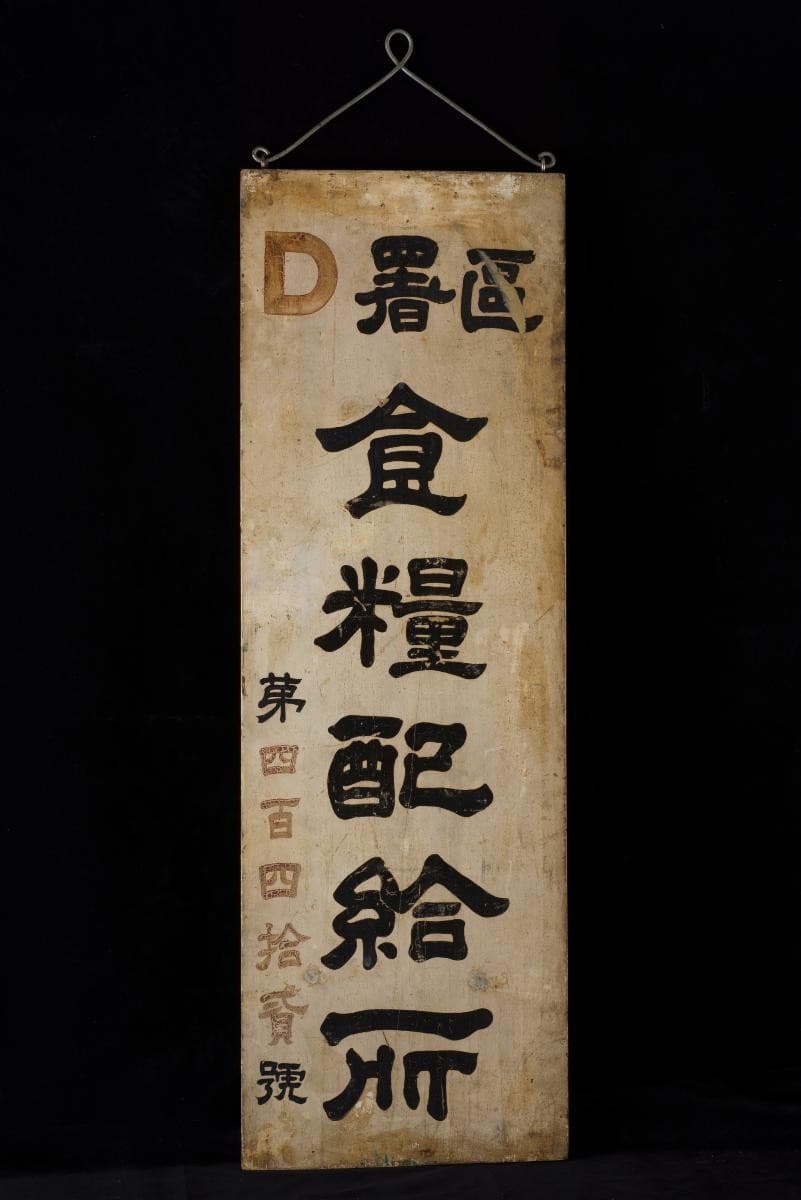 區署D
食糧配給所
苐四百四拾貳號